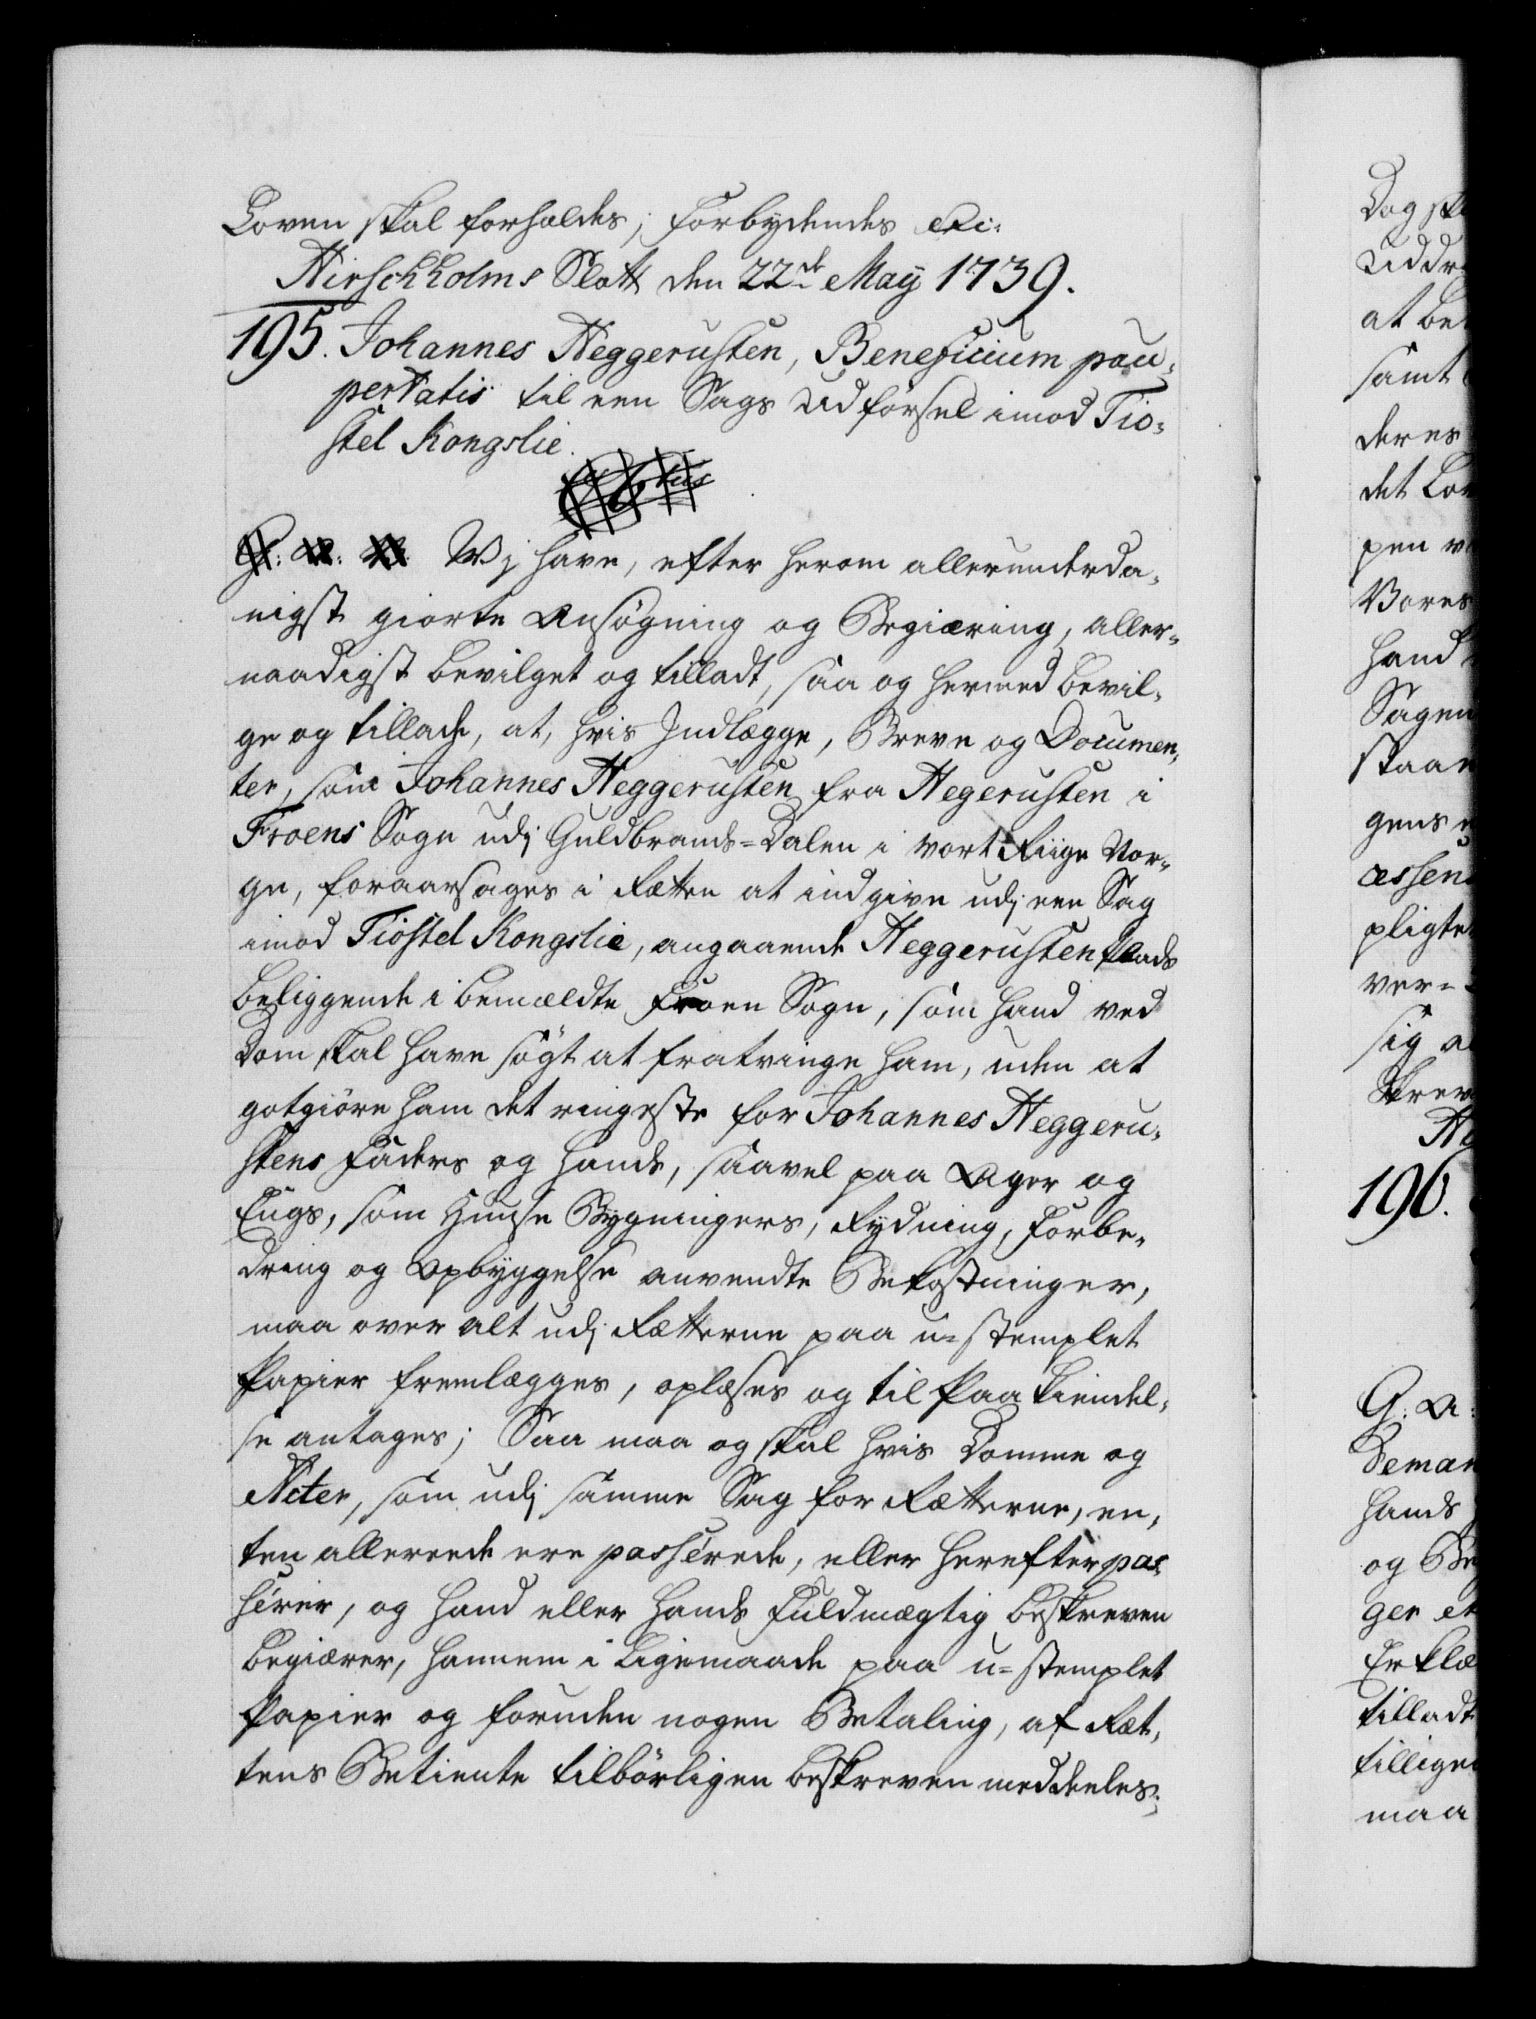 Loven skal forholdes; Forbydendes etc:
Hirschholms Slott den 22de Maij 1739.
195. Johannes Heggerusten, Beneficium pau-
pertatis til een Sags Udførsel imod Tio-
stel Kongslie.
Wj have, efter herom allerunderda-
nigst giorte Ansøgning og Begiæring, aller-
naadigst bevilget og tilladt, saa og hermed bevil-
ge og tillade, at, hvis Indlægge, Breve og Documen-
ter, som Johannes Heggerusten fra Hegerusten i
Froens Sogn udj Guldbrands-Dalen i vort Riige Nor-
ge, foraarsages i Retten at indgive udj een Sag
imod Tiostel Kongslie, angaaende Heggerusten Plads
beliggende i bemældte Froen Sogn, som hand ved
Dom skal have søgt at fratvinge ham, uden at
gotgiøre ham det ringeste for Johannes Heggeru-
stens Faders og hands, saavel paa Ager og
Engs, som Huuse Bygningers, Rydning, Forbe-
dring og Opbyggelse anvendte Bekostninger,
maa over alt udj Rætterne paa u-stemplet
Papier fremlægges, oplæses og til Paakiendel-
se antages; Saa maa og skal hvis Domme og
Acter, som udj samme Sag for Rætterne, en-
ten allereede ere passerede, eller herefter pas-
serer, og hand eller hands Fuldmægtig beskreven
begiærer, hannem i ligemaade paa u-stemplet
Papier og foruden nogen Betaling, af Ræt-
tens Betiente tilbørligen beskreven meddeeles;
Dog ska
Uddra
at be
samt
deres
det
pen
Vores
hand
Sagen
staar
gens
æssen
pligte
ver-
sig
skrev
196.
G: A:
Deman
hands
og Be
ger er
Erklæ
tilladt
tillige
maa